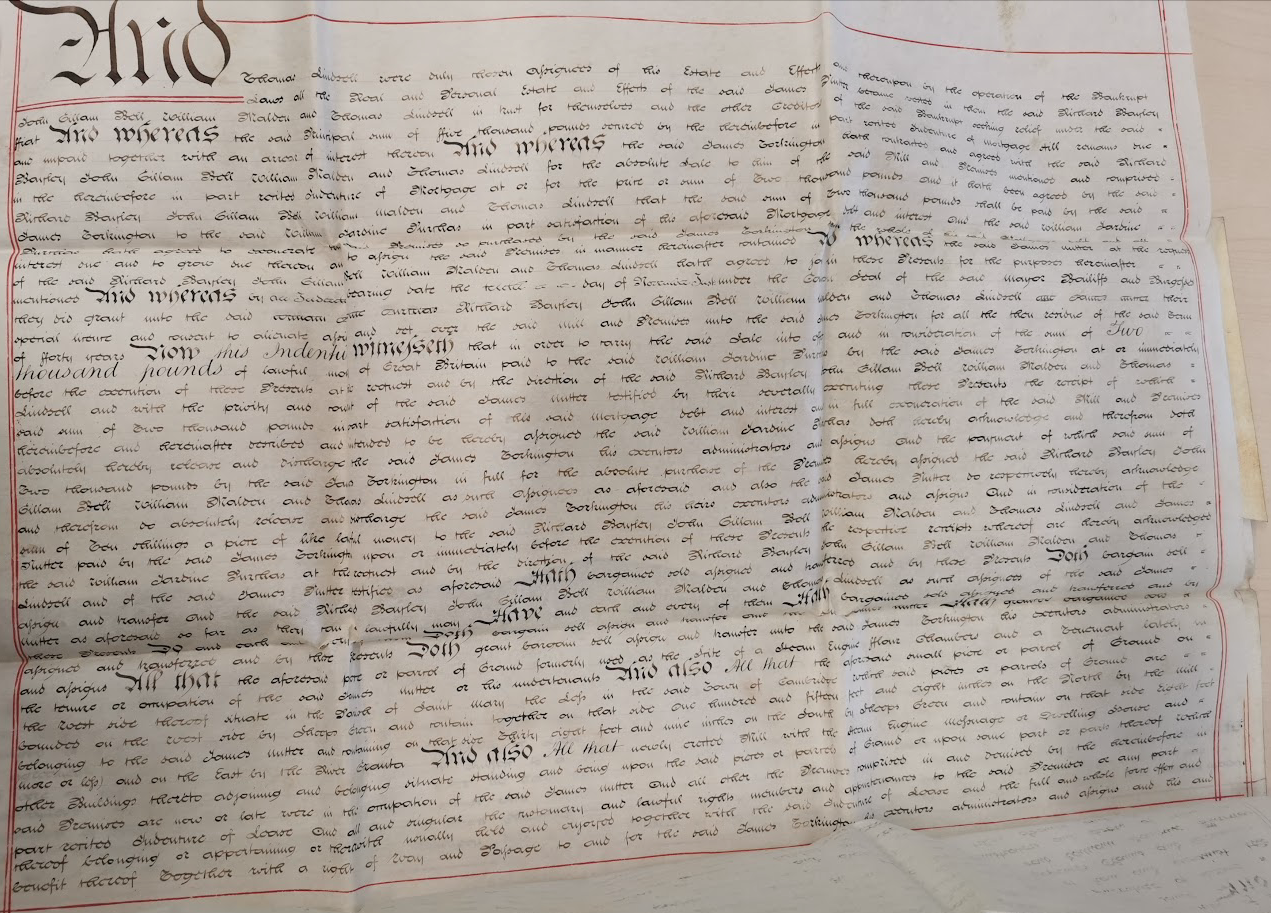 And
Thomas Lindsell were duly chosen Assignees of his Estate and Effects and thereupon by the operation of the Bankrupt
Laws all the Real and Personal Estate and Effects of the said James Nutter became vested in them the said Richard Bayley
John Gillam Bell William Malden and Thomas Lindsell in trust for themselves and the other Creditors of the said Bankrupt seeking relief under the said
fiat And whereas the said Principal sum of ffive thousand pounds secured by the hereinbefore in part recited Indenture of mortgage still remains due
and unpaid together with an arrear of interest thereon And whereas the said James Torkington hath contracted and agreed with the said Richard
Bayley John Gillam Bell William Malden and Thomas Lindsell for the absolute sale to him of the said Mill and Premises mentioned and comprised
in the hereinbefore in part recited Indenture of Mortgage at or for the price or sum of Two thousand pounds and it hath been agreed by the said
Richard Bayley John Gillam Bell William Malden and Thomas Lindsell that the said sum of Two thousand pounds shall be paid by the said
James Torkington to the said William Jardine Purchas in part satisfaction of his aforesaid Mortgage debt and interest And the said William Jardine
Purchas hath agreed to exonerate the Premises so purchased by the said James Torkington the whole of the said
interest due and to grow due thereon and to assign the said Premises in manner hereinafter contained And whereas the said James Nutter at the request
of the said Richard Bayley John Gillam Bell William Malden and Thomas Lindsell hath agreed to join in these Presents for the purposes hereinafter
mentioned And whereas by an Indenture bearing date the day of November under the Common Seal of the said Mayor Bailiffs and Burgesses
they did grant unto the said William Jardine Purchas Richard Bayley John Gillam Bell William Malden and Thomas Lindsell and James Nutter their
special licence and consent to alienate assign and set over the said mill and Premises unto the said James Torkington for all the then residue of the said Term
of fforty years Now this Indenture witnesseth that in order to carry the said Sale into effect and in consideration of the sum of Two
thousand pounds of lawful money of Great Britain paid to the said William Jardine Purchas by the said James Torkington at or immediately
before the execution of these Presents at the request and by the direction of the said Richard Bayley John Gillam Bell William Malden and Thomas
Lindsell and with the priority and consent of the said James Nutter testified by their severally executing these Presents the receipt of which
said sum of Two thousand pounds in part satisfaction of his said mortgage debt and interest and in full exoneration of the said Mill and Premises
hereinbefore and hereinafter described and intended to be hereby assigned the said William Jardine Purchas doth hereby acknowledge and therefrom doth
absolutely hereby release and discharge the said James Torkington his executors administrators and assigns And the payment of which said sum of
Two thousand pounds by the said James Torkington in full for the absolute purchase of the Premises hereby assigned the said Richard Bayley John
Gillam Bell William Malden and Thomas Lindsell as such Assignees as aforesaid and also the said James Nutter do respectively hereby acknowledge
and therefrom do absolutely release and discharge the said James Torkington his heirs executors administrators and assigns And in consideration of the
sum of Ten shillings a piece of like lawful money to the said Richard Bayley John Gillam Bell William Malden and Thomas Lindsell and James
Nutter paid by the said James Torkington upon or immediately before the execution of these Presents the respective receipts whereof are hereby acknowledged
the said William Jardine Purchas at the request and by the direction of the said Richard Bayley John Gillam Bell William Malden and Thomas
Lindsell and of the said James Nutter testified as aforesaid Hath bargained sold assigned and transferred and by these Presents Doth bargain sell
assign and transfer And the said Richard Bayley John Gillam Bell William Malden and Thomas Lindsell as such assignees of the said James
Nutter as aforesaid so far as they can lawfully may Have and each and every of them Hath bargained sold assigned and transferred and by
these Presents Do and each and Doth bargain sell assign and transfer and the said James Nutter Hath granted bargained sold
assigned and transferred and by these Presents Doth grant bargain sell assign and transfer unto the said James Torkington his executors administrators
and assigns All that the aforesaid piece or parcel of Ground formerly used as the Site of a Steam Engine fflour Chambers and a Tenement lately in
the tenure or occupation of the said James Nutter or his undertenants And also All that the aforesaid small piece or parcel of Ground on
the West side thereof situate in the Parish of Saint Mary the Less in the said Town of Cambridge which said pieces or parcels of Ground are
bounded on the West side by Sheeps Green and contain together on that side One hundred and fifteen feet and eight inches on the North by the mill
belonging to the said James Nutter and containing on that side Thirty eight feet and nine inches on the South by Sheeps Green and contain on that side eight feet
more or less and on the East by the River Granta And also All that newly erected Mill with the Steam Engine Messuage or Dwelling House and
other Buildings thereto adjoining and belonging situate standing and being upon the said pieces or parcels of Ground or upon some part or parts thereof which
said Premises are now or late were in the occupation of the said James Nutter And all other the Premises comprised in and demised by the hereinbefore in
part recited Indenture of Lease And all and singular the customary and lawful rights members and appurtenances to the said Premises or any part
thereof belonging or appertaining or therewith usually held and enjoyed together with the said Indenture of Lease and the full and whole force effect and
benefit thereof Together with a right of Way and Passage to and for the said James Torkington his executors administrators and assigns and his and